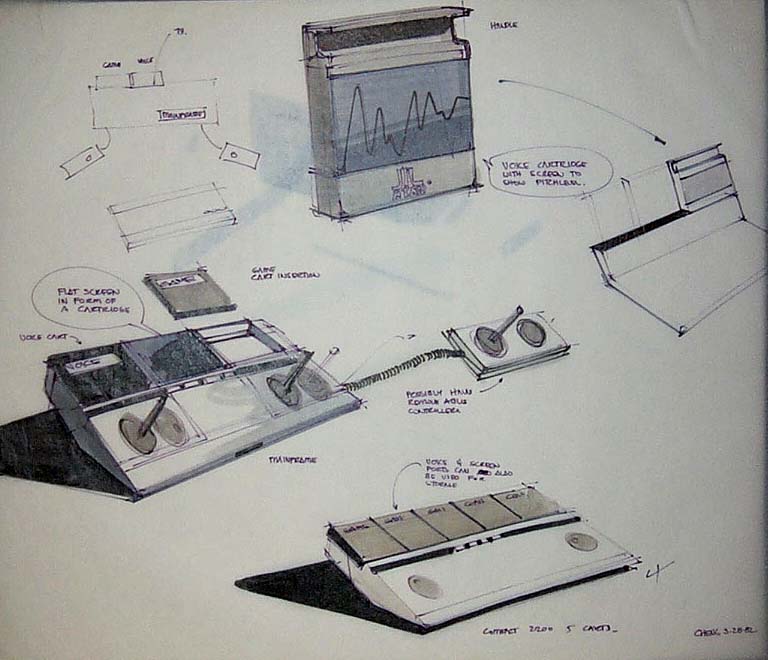 TV.
GAME
VOICE
MAINFRAME
HANDLE
ATARI
VOICE CARTRIDGE
WITH SCREEN TO
SHOW PITCH LEVEL.
GAME
CART INSERTION
GAME
FLAT SCREEN
IN FORM OF
A CARTRIDGE
VOICE CART
VOICE
POSSIBLY HAVE
REMOVEABLE
CONTROLLERS
MAINFRAME
VOICE & SCREEN
PORTS CAN ALSO
BE USED FOR
STORAGE
GAME
GAME
CONTACT 2200 5 CARTS_
4
CHENG 3-28-82